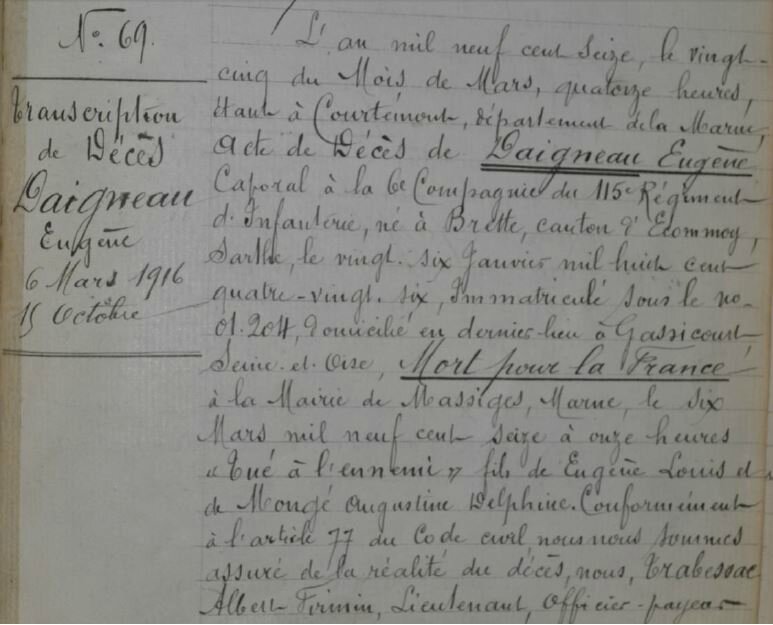 N° 69.
Transcription
de Décès
Daigneau
Eugène
6 Mars 1916
15 Octobre
L'an mil neuf cent seize, le vingt-
cinq du Mois de Mars, quatorze heures,
étant à Courtémont, département de la Marne,
Acte de Décès de Daigneau Eugène
Caporal à la 6e Compagnie du 115e Régiment
d'Infanterie, né à Brette, canton d'Ecommoy,
Sarthe, le vingt-six Janvier mil huit cent
quatre-vingt-six, Immatriculé sous le no-
01.204, domicilié en dernier lieu à Gassicourt
Seine-et-Oise, Mort pour la France
à la Mairie de Massiges, Marne, le six
Mars mil neuf cent seize à onze heures
"Tué à l'ennemi" fils de Eugène Louis et
de Mongé Augustine Delphine. Conformément
à l'article 77 du Code civil nous nous sommes
assuré de la réalité du décès, nous, Trabessac
Albert-Firmin, Lieutenant, Officier-payeur